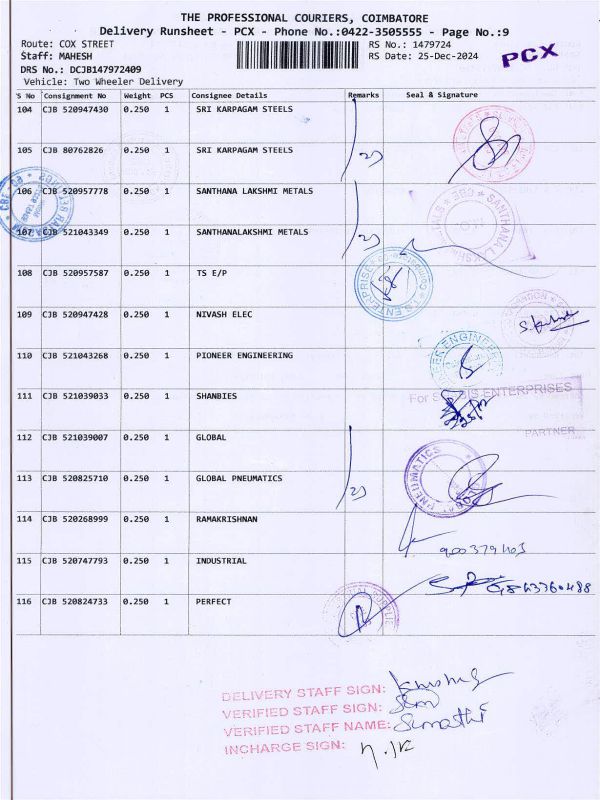 THE PROFESSIONAL COURIERS, COIMBATORE
Delivery Runsheet - PCX - Phone No.:0422-3505555 - Page No.:9
Route: COX STREET
RS No.: 1479724
Staff: MAHESH
RS Date: 25-Dec-2024
PCX
DRS No.: DCJB147972409
Vehicle: Two Wheeler Delivery
S No Consignment No Weight PCS Consignee Details Remarks Seal & Signature
104 CJB 520947430 0.250 1 SRI KARPAGAM STEELS
105 CJB 80762826 0.250 1 SRI KARPAGAM STEELS
106 CJB 520957778 0.250 1 SANTHANA LAKSHMI METALS
107 CJB 521043349 0.250 1 SANTHANALAKSHMI METALS
108 CJB 520957587 0.250 1 TS E/P
109 CJB 520947428 0.250 1 NIVASH ELEC
110 CJB 521043268 0.250 1 PIONEER ENGINEERING
111 CJB 521039033 0.250 1 SHANBIES
For ENTERPRISES
112 CJB 521039007 0.250 1 GLOBAL
PARTNER
113 CJB 520825710 0.250 1 GLOBAL PNEUMATICS
PNEUMATICS
114 CJB 520268999 0.250 1 RAMAKRISHNAN
115 CJB 520747793 0.250 1 INDUSTRIAL
116 CJB 520824733 0.250 1 PERFECT
DELIVERY STAFF SIGN:
VERIFIED STAFF SIGN:
VERIFIED STAFF NAME: Sumathi
INCHARGE SIGN: